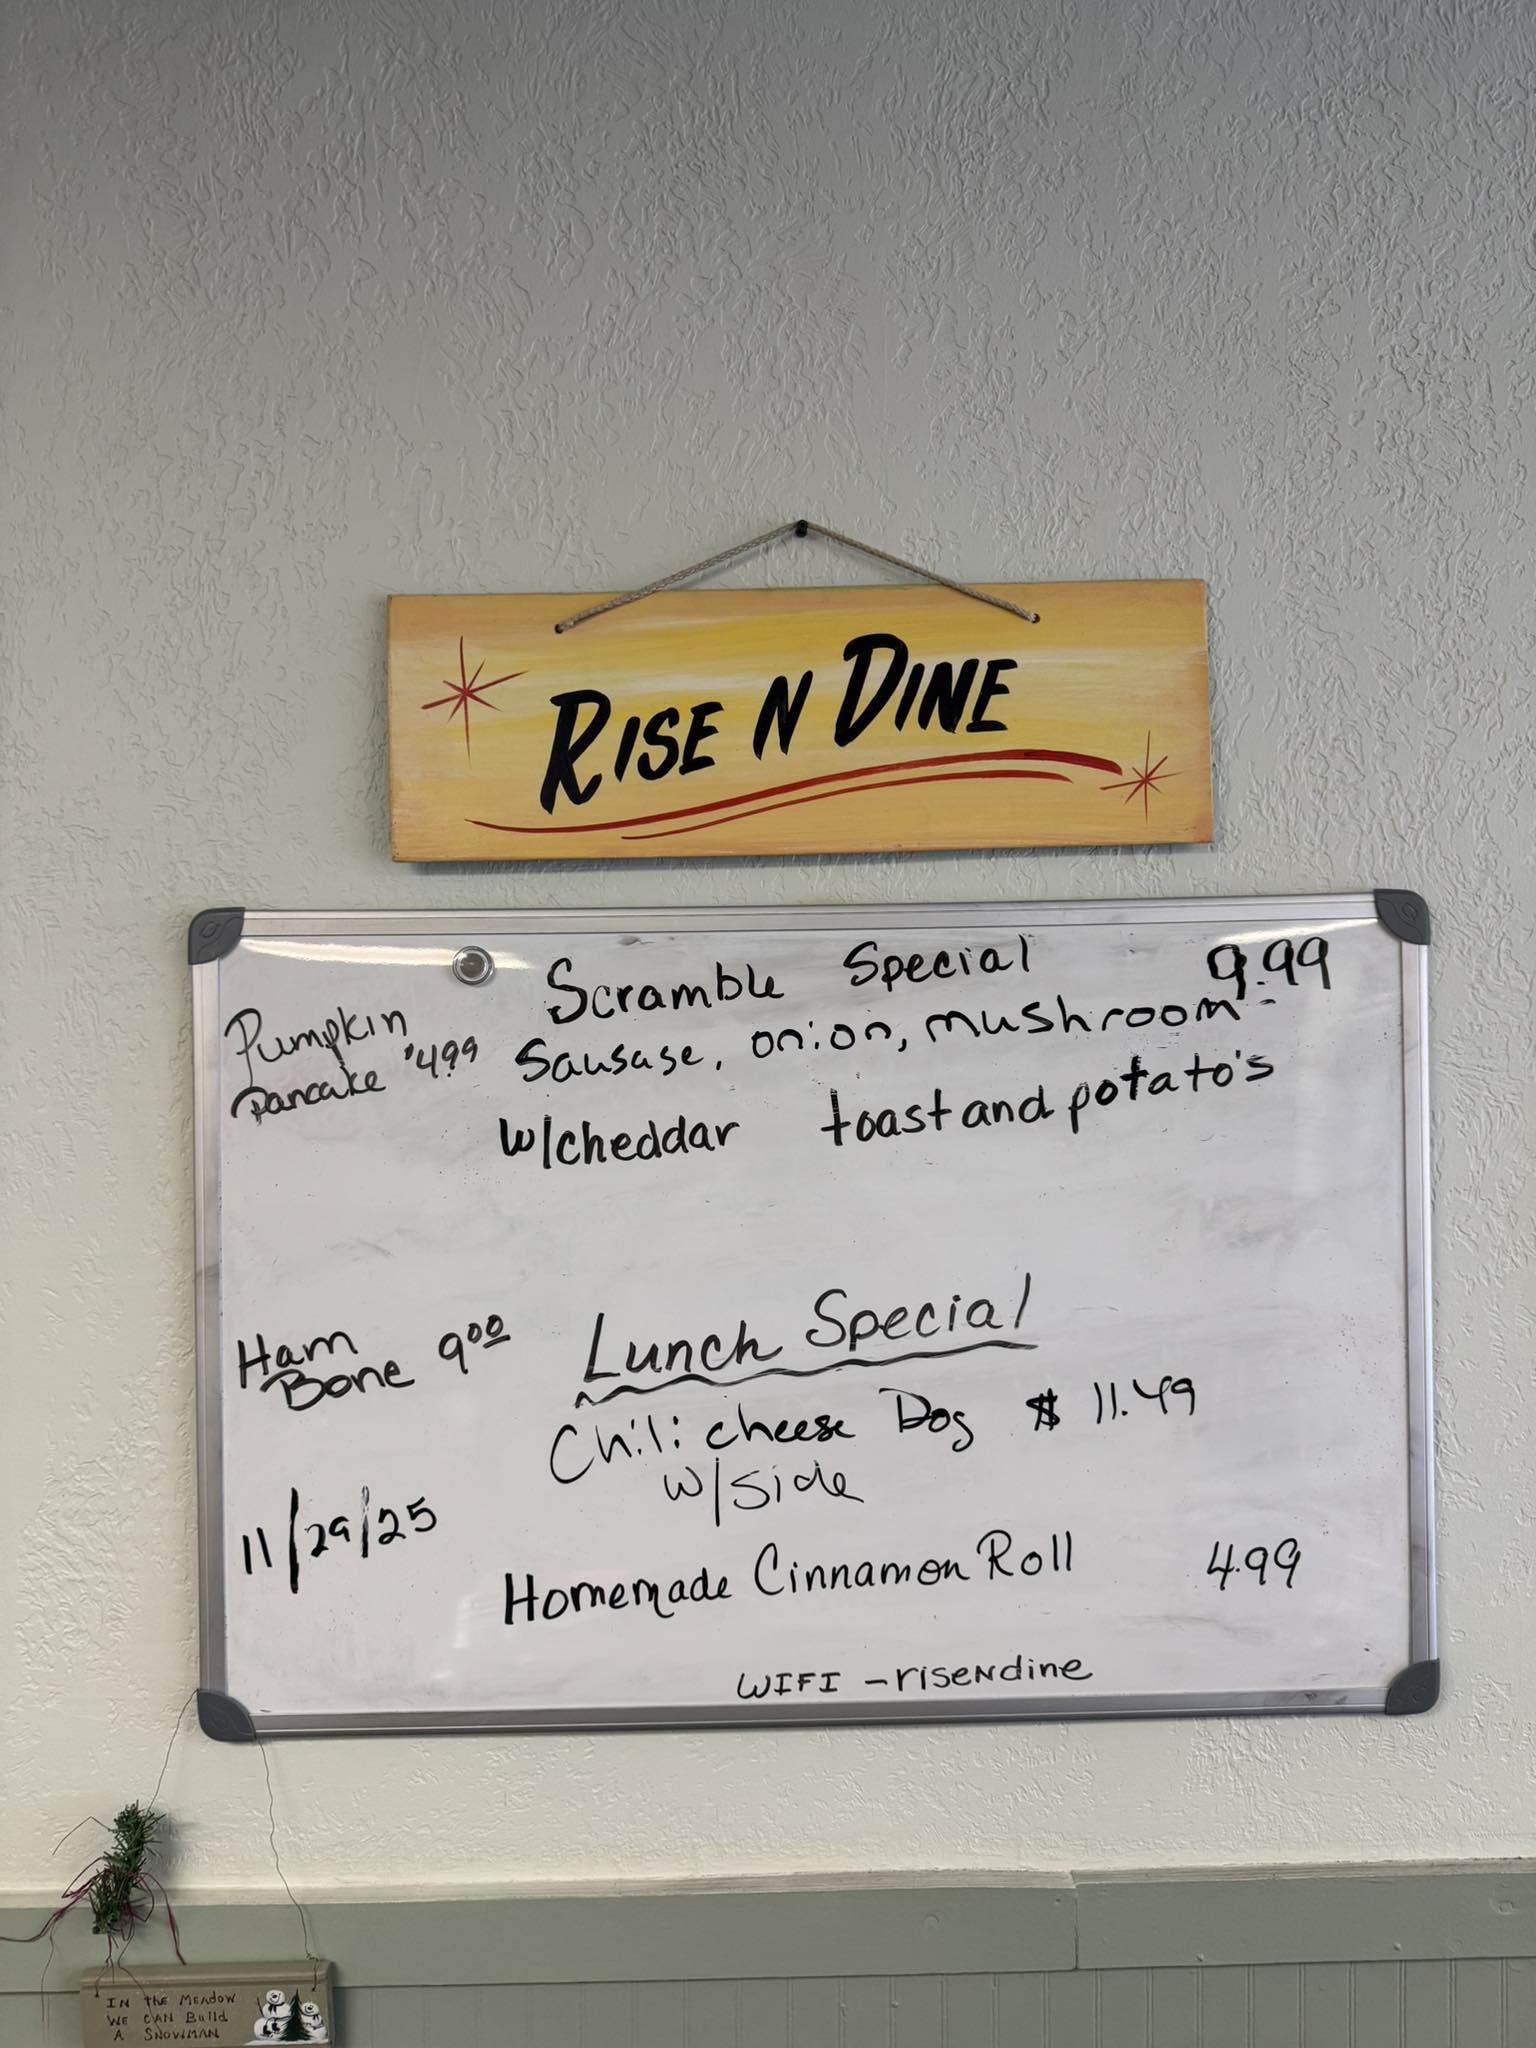 RISE N DINE
Scramble Special 9.99
Pumpkin
Pancake $4.99
Sausage, onion, mushroom
w/cheddar toast and potato's
Lunch Special
Ham
Bone 9.00
Chili cheese Dog $ 11.49
w/side
11/29/25
Homemade Cinnamon Roll 4.99
WIFI - riseNdine
IN the MEADOW
WE CAN Build
A SNOWMAN